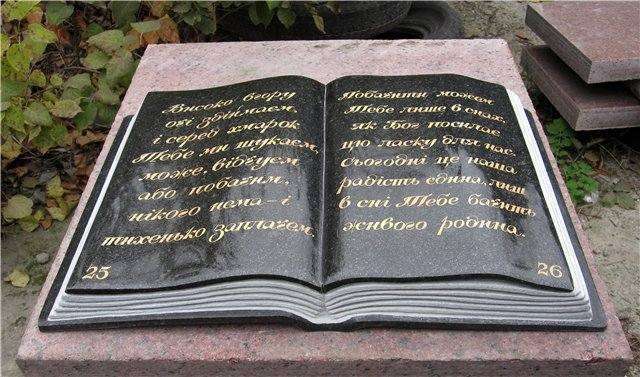 Високо вгору
очі звіймаєм,
і серед хмарок
Тебе ми шукаєм,
може, відчуєм
або побачим,
нікого нема – і
тихенько заплачем.
25
Побачити можем
Тебе лише в снах,
як Бог посилає
цю ласку для нас.
Сьогодні це наша
радість єдина, лиш
в сні Тебе бачить
живого родина.
26